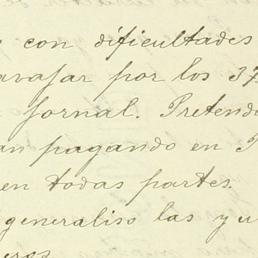 con dificultades
avajar por los 37
jornal. Pretend
an pagando en P
en todas partes.
generaliso las y u
eros